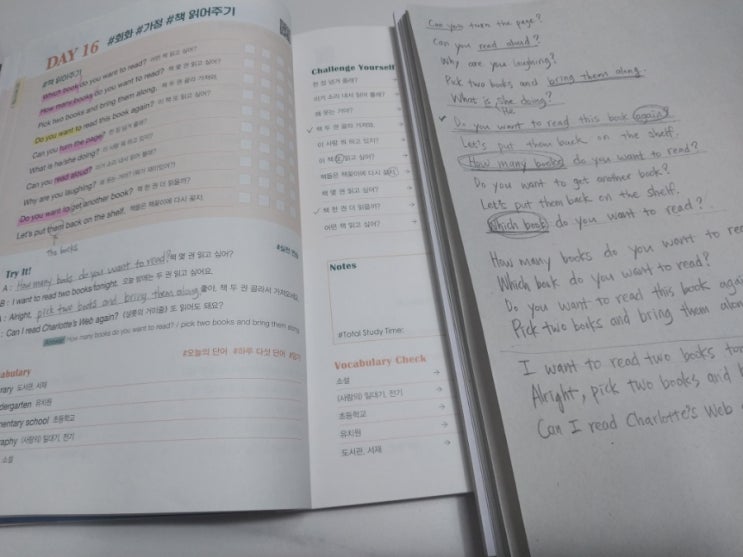 DAY 16 #회화 #가정 #책 읽어주기
#책 읽어주기
Which book do you want to read? 어떤 책 읽고 싶어?
How many books do you want to read? 책 몇 권 읽고 싶어?
Pick two books and bring them along. 책 두 권 골라 가져와.
Do you want to read this book again? 이 책 또 읽고 싶어?
Can you turn the page? 한 장 넘겨 줄래?
What is he/she doing? 이 사람 뭐 하고 있어?
Can you read aloud? 아기 소리 내서 읽어 줄래?
Why are you laughing? 왜 웃는 거야?
Do you want to get another book? 책 한 권 더 읽을까?
Let's put them back on the shelf. 책들은 책꽂이에 다시 꽂자.
The books
Try It!
A: How many books do you want to read? 책 몇 권 읽고 싶어?
B: I want to read two books tonight. 오늘 밤에는 두 권 읽고 싶어요.
: Alright, pick two books and bring them along 좋아, 책 두 권 골라서 가져와.
: Can I read Charlotte's Web again? (샬롯의 거미줄) 또 읽어도 돼요?
Answer How many books do you want to read? / pick two books and bring them along
#오늘의 단어 #하루 다섯 단어
abulary
rary 도서관, 서재
ndergarten 유치원
mentary school 초등학교
raphy (사람의) 일대기, 전기
소설
Challenge Yourself
한 장 넘겨 줄래?
아기 소리 내서 읽어 줄래?
왜 웃는 거야?
✓ 책 두 권 골라 가져와.
이 사람 뭐 하고 있어?
이 책 또 읽고 싶어?
책들은 책꽂이에 다시 꽂자.
책 몇 권 읽고 싶어?
✓ 책 한 권 더 읽을까?
어떤 책 읽고 싶어?
Notes
#Total Study Time:
Vocabulary Check
소설
(사람의) 일대기, 전기
초등학교
유치원
도서관, 서재
Can you turn the page?
Can you read aloud?
Why are you laughing?
Pick two books and bring them along.
What is she doing?
He
✓ Do you want to read this book again?
Let's put them back on the shelf.
How many books do you want to read?
Do you want to get another book?
Let's put them back on the shelf.
Which book do you want to read?
How many books do you want to rea
Which book do you want to read?
Do you want to read this book again
Pick two books and bring them alon
I want to read two books to
Alright, pick two books and b
Can I read Charlotte's Web